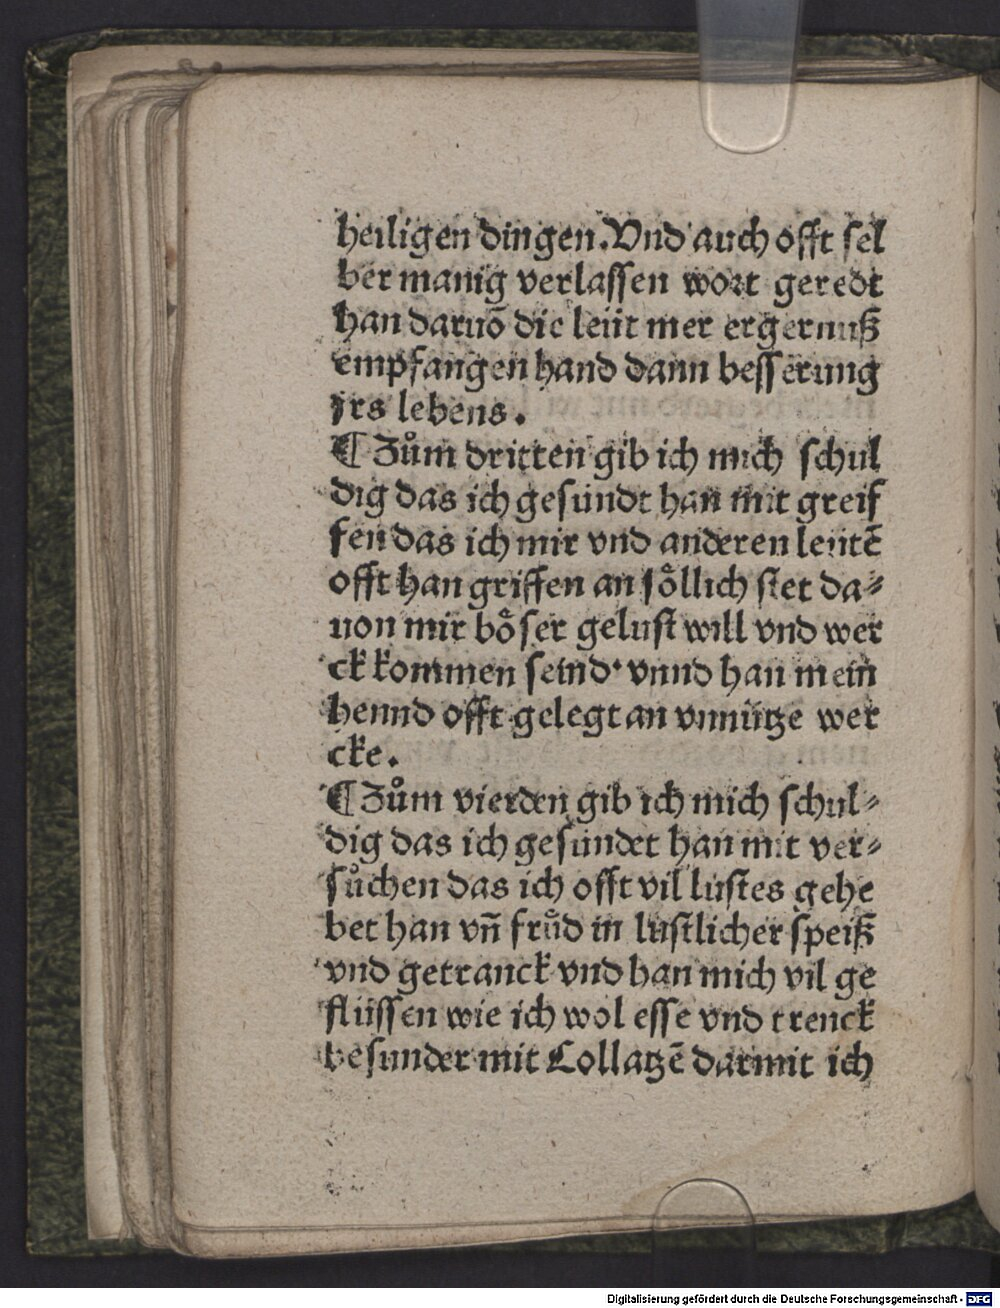 heiligen dingen. Vnd auch offt sel
ber manig verlassen wort geredt
han daruõ die leüt mer ergernuß
empfangen hand dann besserung
jrs lebens.
¶ Zům dritten gib ich mich schul
dig das ich gesundt han mit greif
fen das ich mir vnd anderen leütẽ
offt han griffen an soͤllich stet da⸗
uon mir boͤser gelust will vnd wer
ck kommen seind· vnnd han mein
hennd offt gelegt an vnnütze wer
cke.
¶ Zům vierden gib ich mich schul⸗
dig das ich gesundet han mit ver⸗
sůchen das ich offt vil lustes gehe
bet han vñ frůd in lustlicher speiß
vnd getranck vnd han mich vil ge
flüssen wie ich wol esse vnd trenck
besunder mit Collatzẽ darmit ich
Digitalisierung gefördert durch die Deutsche Forschungsgemeinschaft - DFG